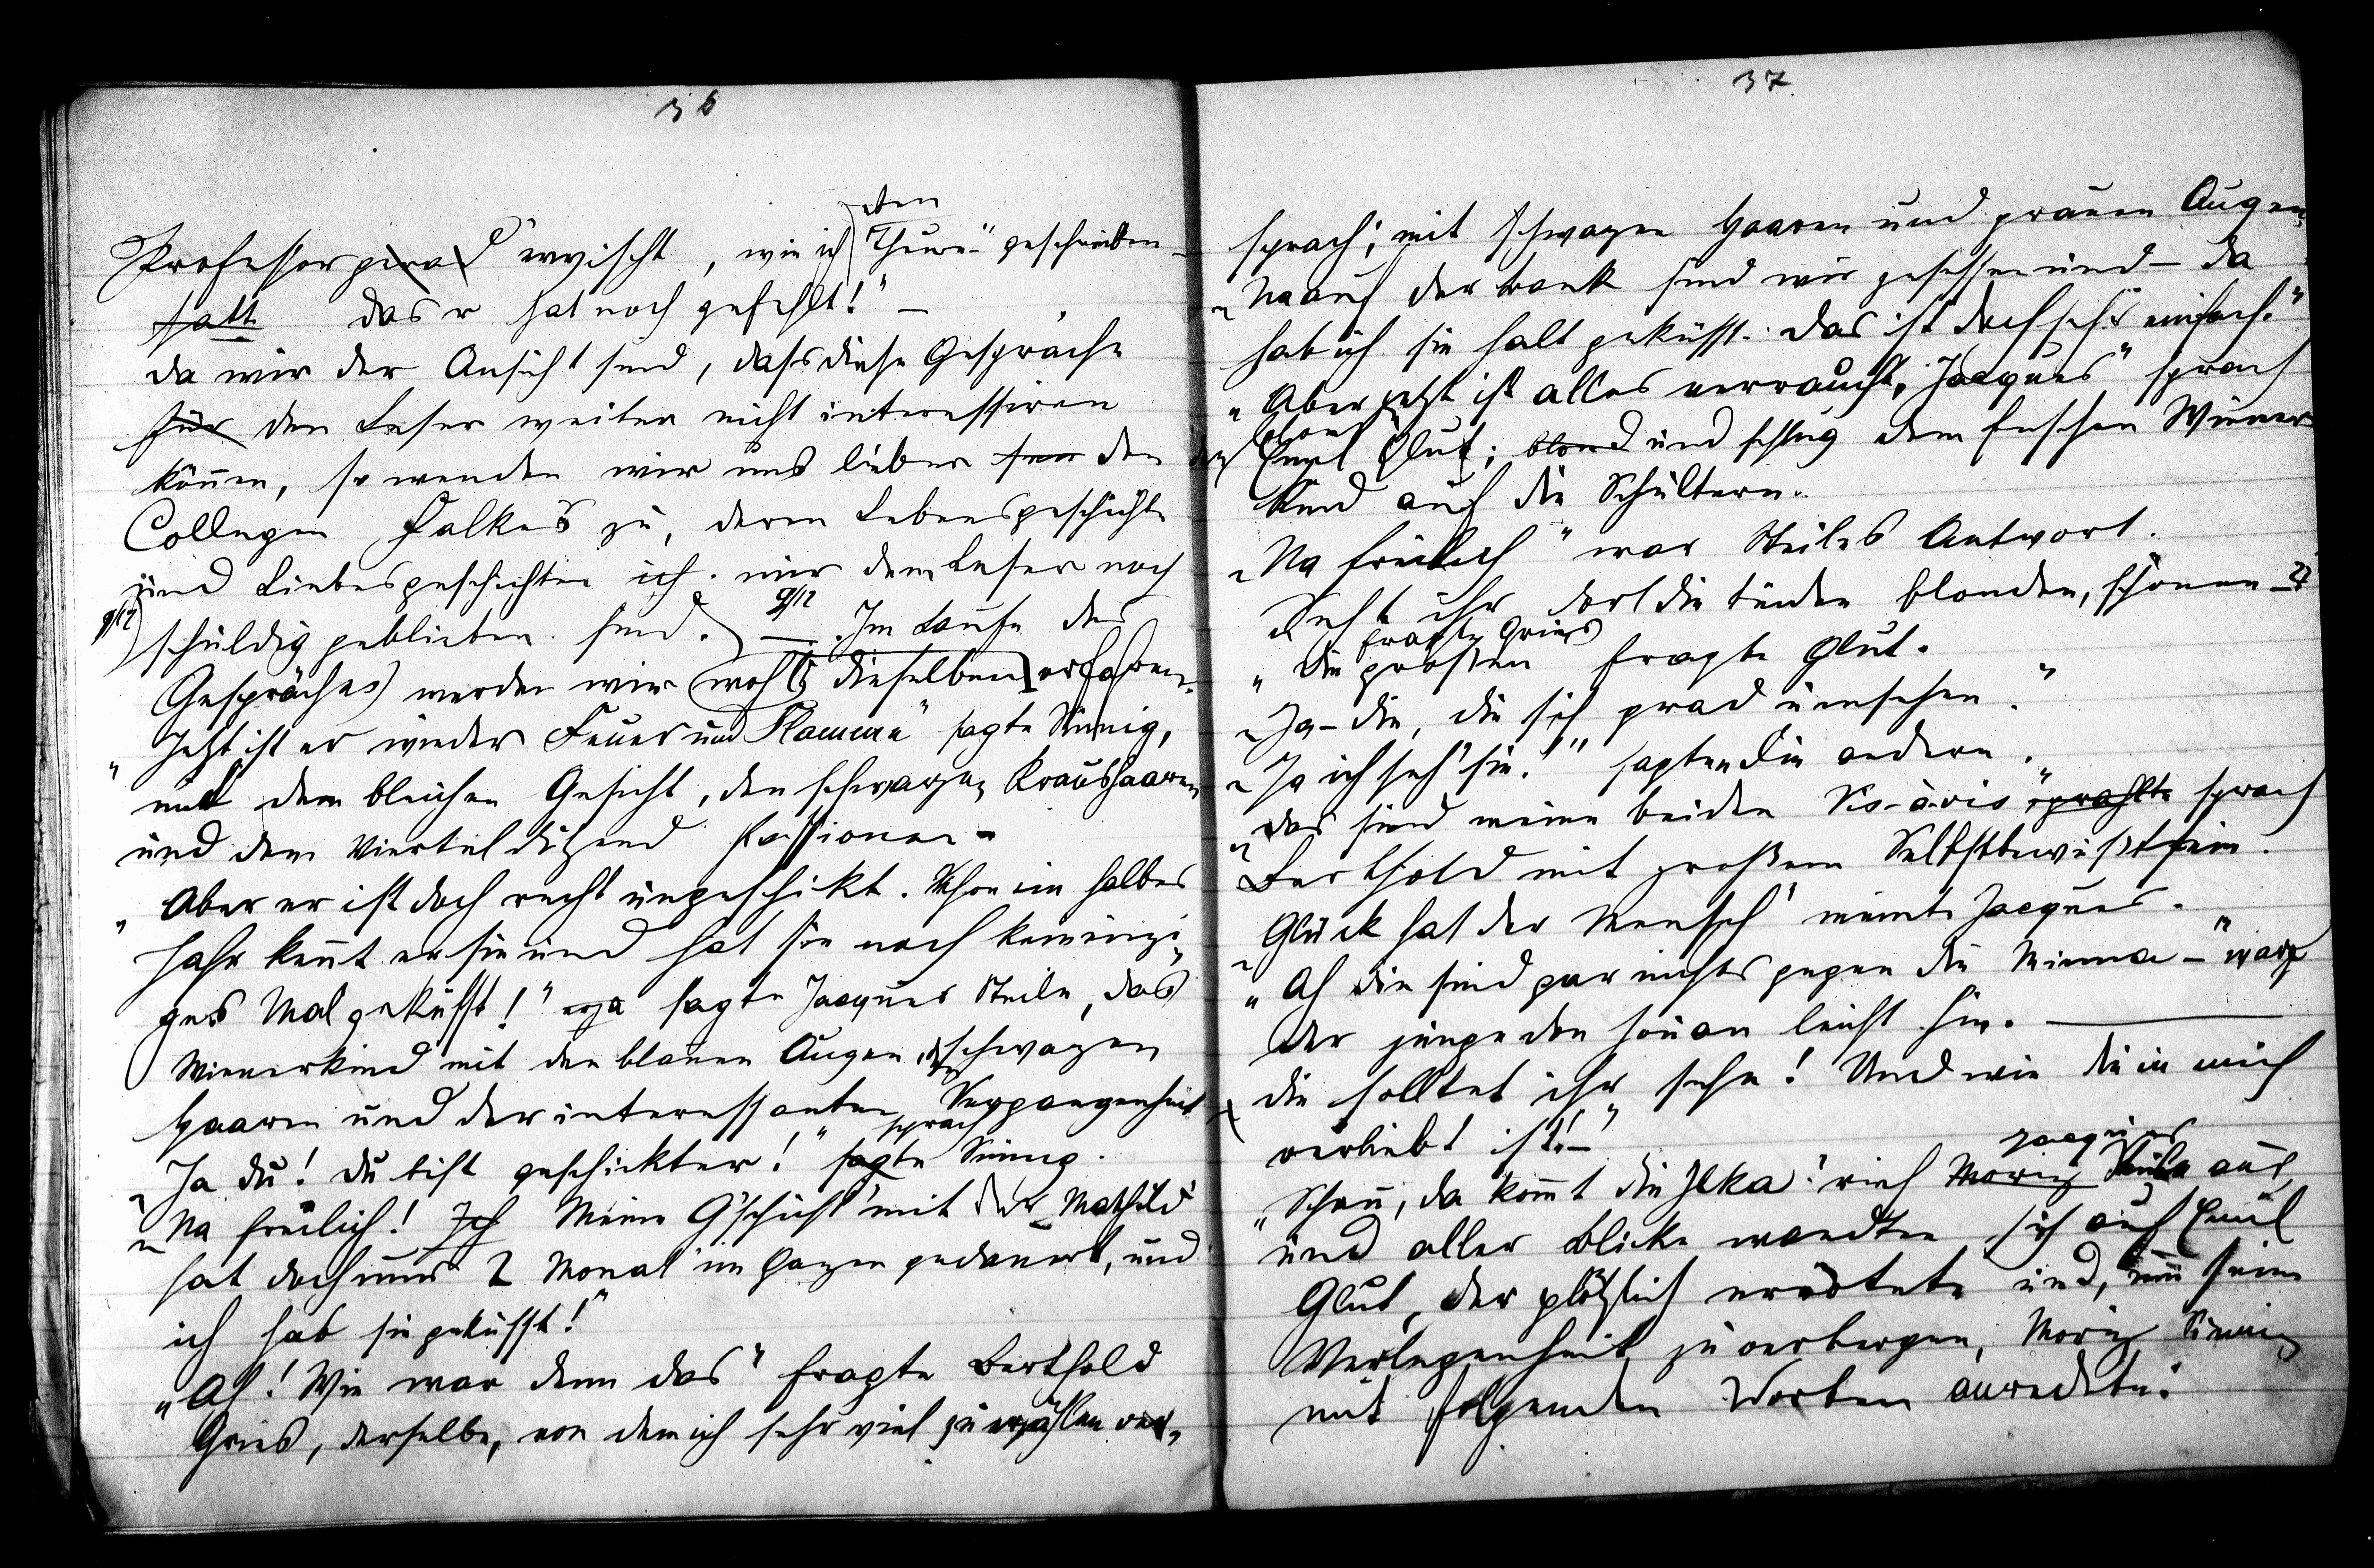 36
eben
Professor grad erwischt, wie ich "Theure" geschrieben
hatt das r hat noch gefehlt!" —
Da wir der Ansicht sind, dass diese Gespräche
für den Leser weiter nicht interessiren
können, so wenden wir uns lieber den
Collegen Falkes zu, deren Lebensgeschichte
und Liebesgeschichten ich mir dem Leser noch
9/12 schuldig geblieben sind. 9/12 — Im Laufe des
Gespräches werden wir wohl dieselben erfahren.
"Jetzt ist er wieder Feuer und Flamme" sagte Sinnig,
mit dem bleichen Gesicht, den schwarzen Kraushaaren
und dem Vierteldutzend Passionen -
"Aber er ist doch recht ungeschikt. Schon ein halbes
Jahr kennt er sie und hat sie noch kein einzi-
ges Mal geküsst!" sagte Jacques Steile, das
Wienerkind mit den blauen Augen, den schwazen
Haaren und der interessanten Vergangenheit
sprach
"Ja du! Du bist geschickter!" sagte Sinnig.
"Na freilich! Ich Meine G'schicht' mit der Mathild'
hat doch nur 2 Monat' im Ganzen gedauert, und
ich hab sie geküsst!"
"Ah! Wie war denn das" fragte Berthold
Gries, derselbe, von dem ich sehr viel zu erzählen ver-
37.
sprach; mit schwazen Haaren und grauen Augen.
"Na auf der Bank sind wir gesessen und — da
hab ich sie halt geküsst. Das ist doch sehr einfach."
"Aber jetzt ist alles verraucht, Jacques" sprach
der blonde Emil Glut; blond und schlug dem feschen Wiener
Kind auf die Schultern.
"Na freilich" war Steiles Antwort.
"Seht ihr dort die beiden blonden, schönen —?
fragte Gries
"Die großen fragte Glut.
"Ja — die, die sich grad umsehen."
"Ja ich seh' sie!" sagten die andern.
"Das sind meine beiden Vis-à-vis" prahlte sprach
Berthold mit großem Selbstbewußtsein.
"Glück hat der Mensch" meinte Jacques.
"Ah die sind gar nichts gegen die Minna —" warf
der junge Don Jouan leicht hin. —
die solltet ihr sehn! Und wie die in mich
verliebt ist! —"
Jacques
"Schau, da kommt die Ilka" rief Moriz Steile aus,
und aller Blicke wandten sich auf Emil
Glut, der plötzlich errötete und, um seine
Verlegenheit zu verbergen, Moriz Sinnig
mit folgenden Worten anredete: